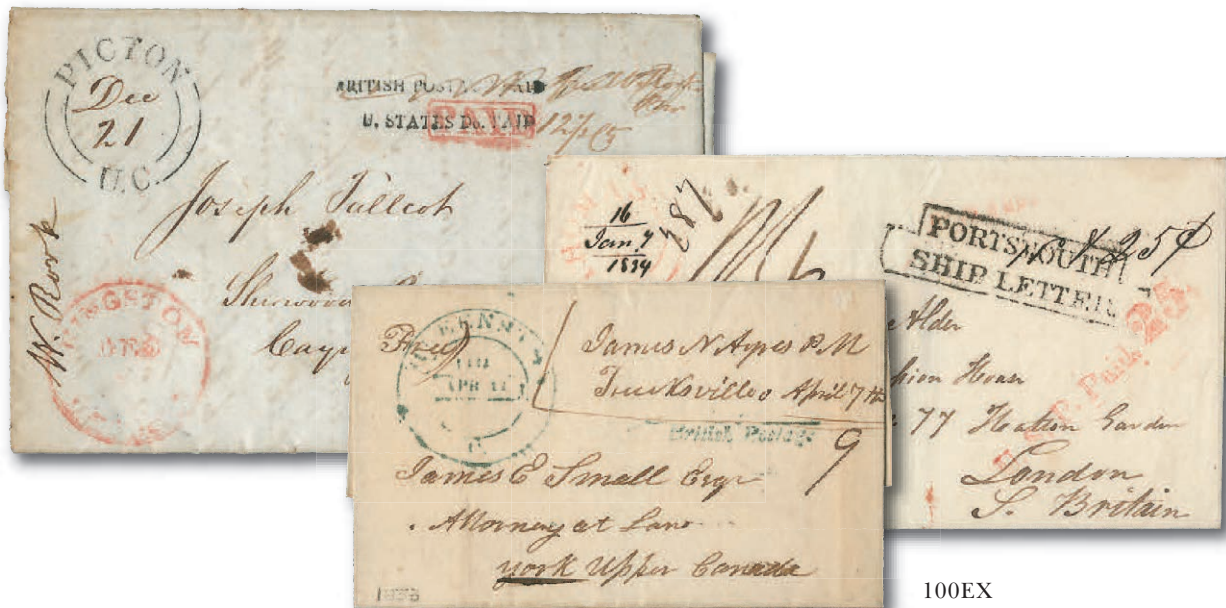 PICTON
Dec
21
U.C.
BRITISH POSTAGE PAID
U. STATES Do. PAID
PAID
12½ c
Joseph Tallcot
Sherwood
Cayu
W. Rork
KINGSTON
16
Jan 7
1834
287
PORTSMOUTH
SHIP LETTER
25
Paid 25
Alder
sion House
77 Hatton Garden
London
S. Britain
Free
QUEENSTON
APR 11
James N Ayres P.M
Trucksville o April 7th
British Postage
9
James E Small Esqr
Attorney at Law
york Upper Canada
100EX